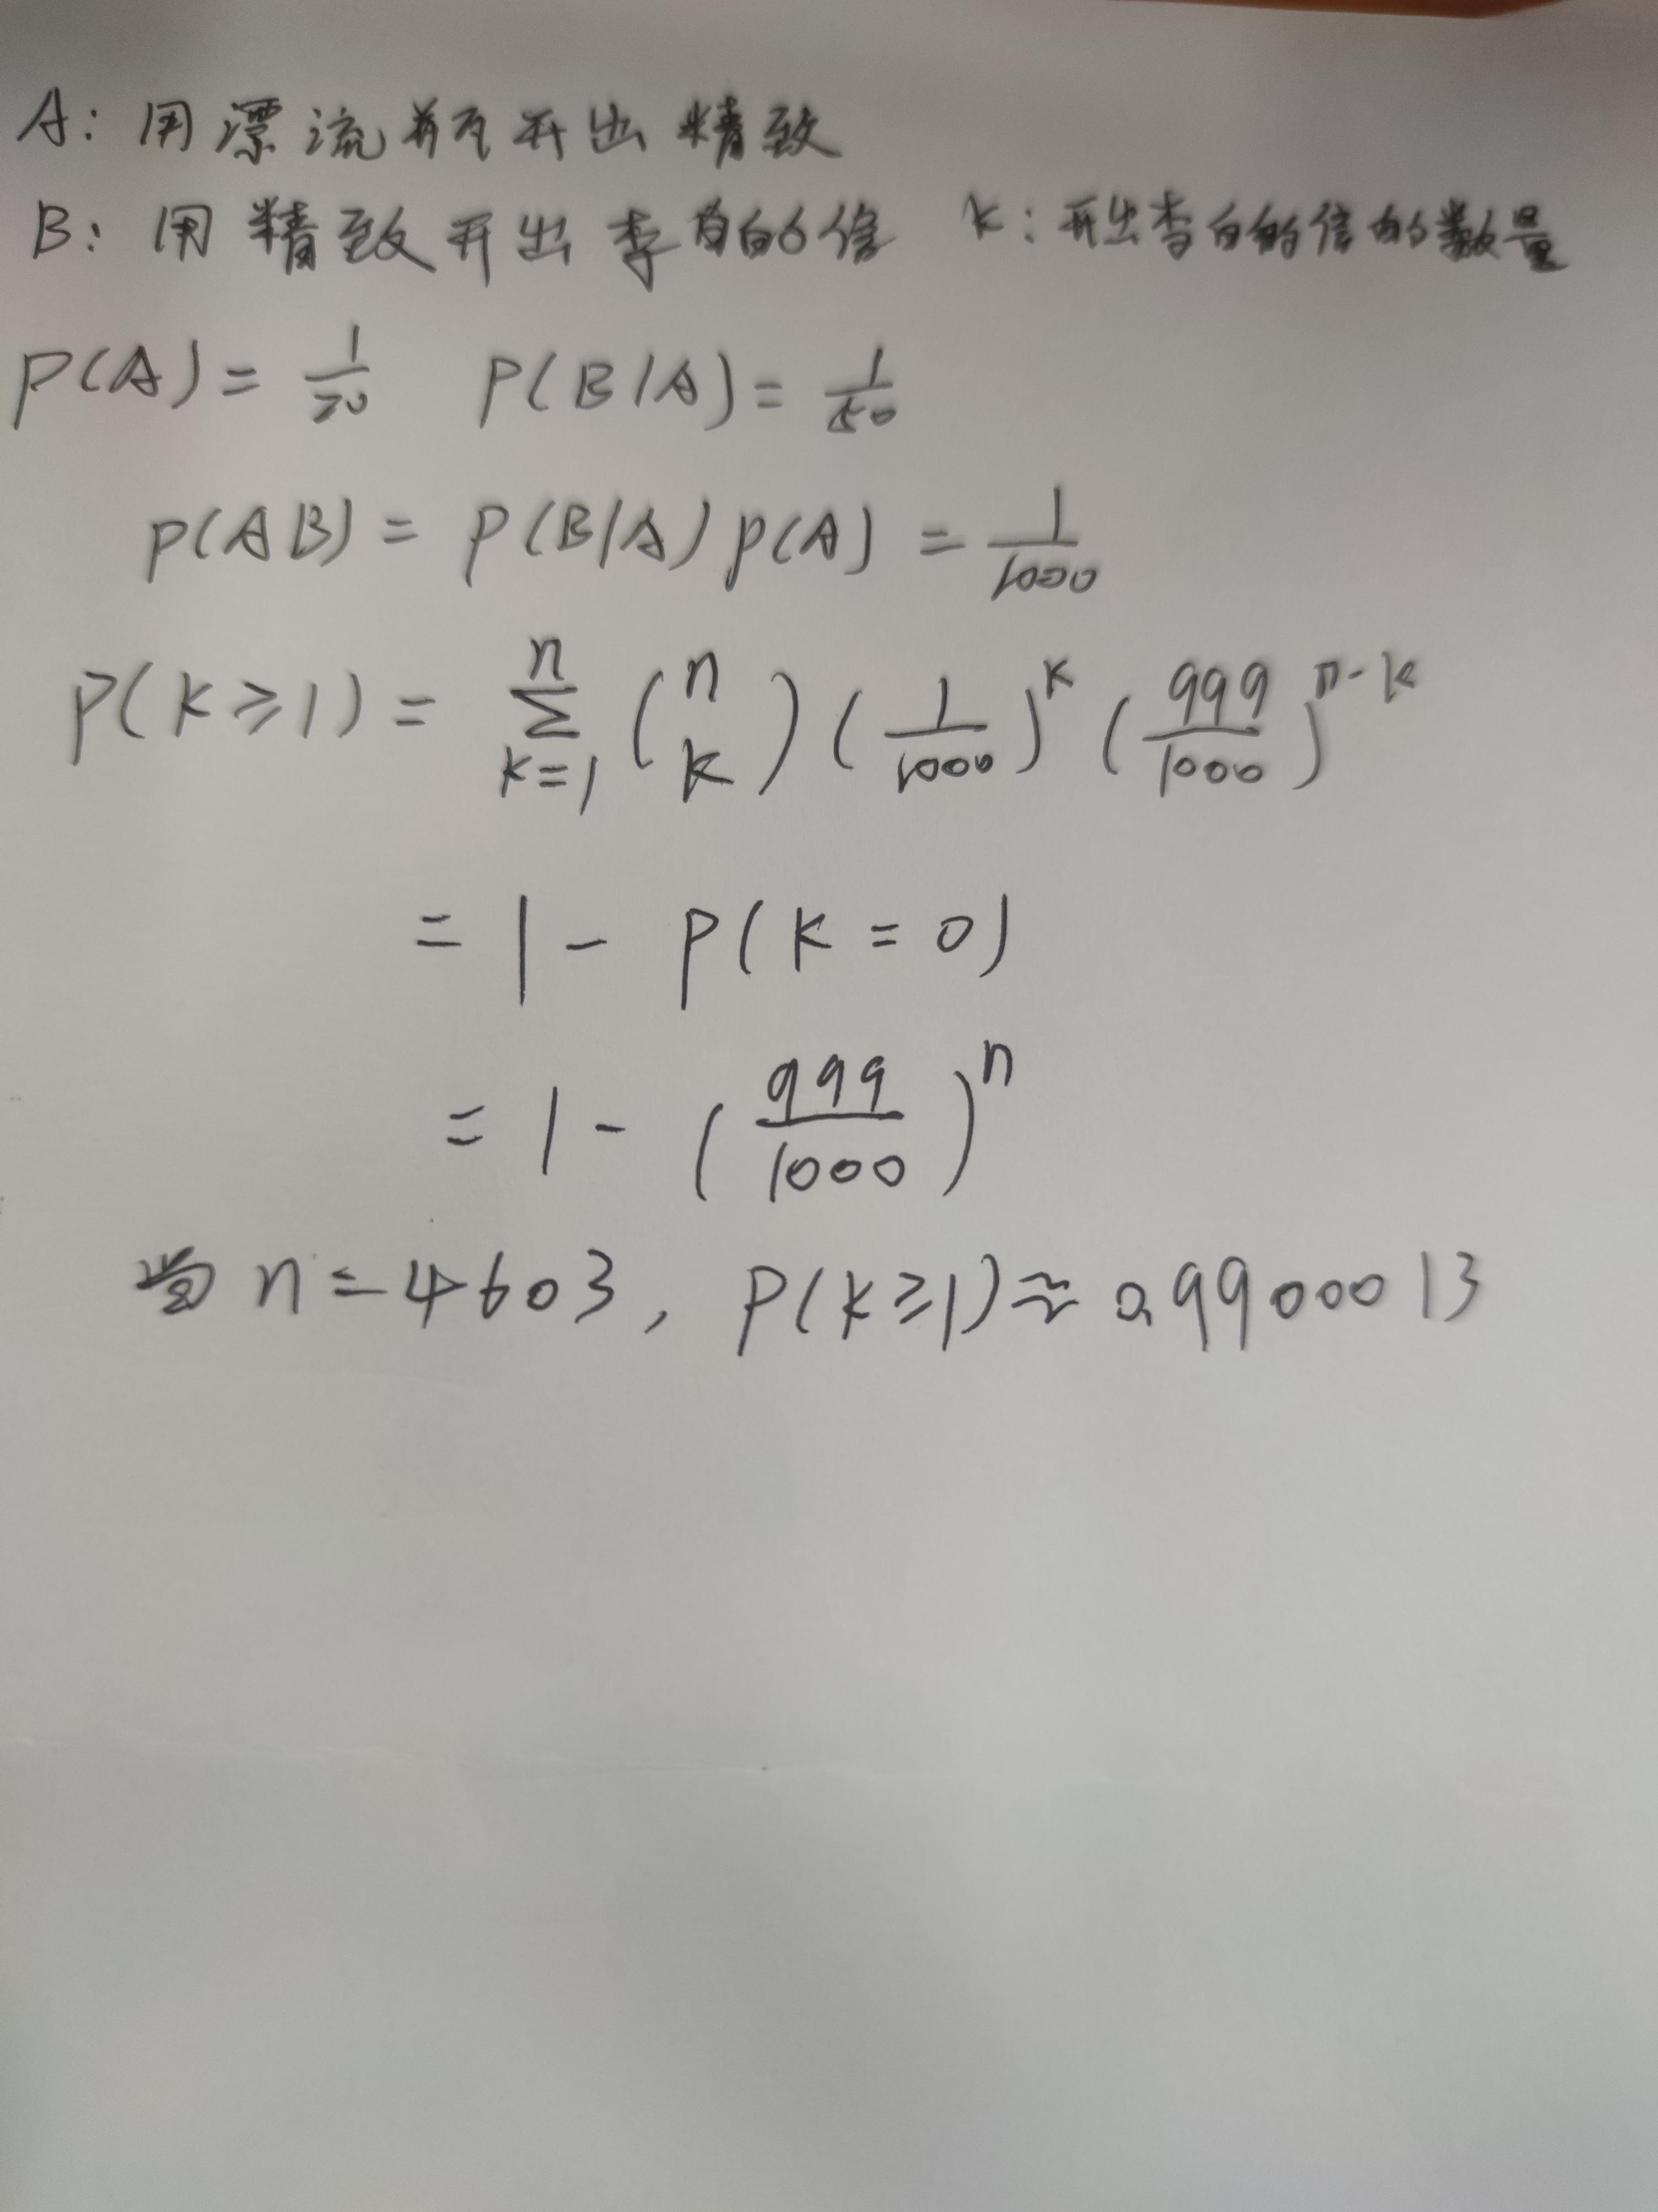 A: 用漂流瓶开出精致
B: 用精致开出李白的信 k: 开出李白的信的数量
P(A) = 1/20 P(B|A) = 1/50
P(AB) = P(B|A) P(A) = 1/1000
P(k≥1) = ∑_{k=1}^{n} (n k) (1/1000)^k (999/1000)^{n-k}
= 1 - P(k=0)
= 1 - (999/1000)^n
当 n=4603, P(k≥1)≈0.9900013